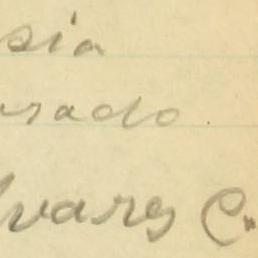 sia
rado.
lvarez C.